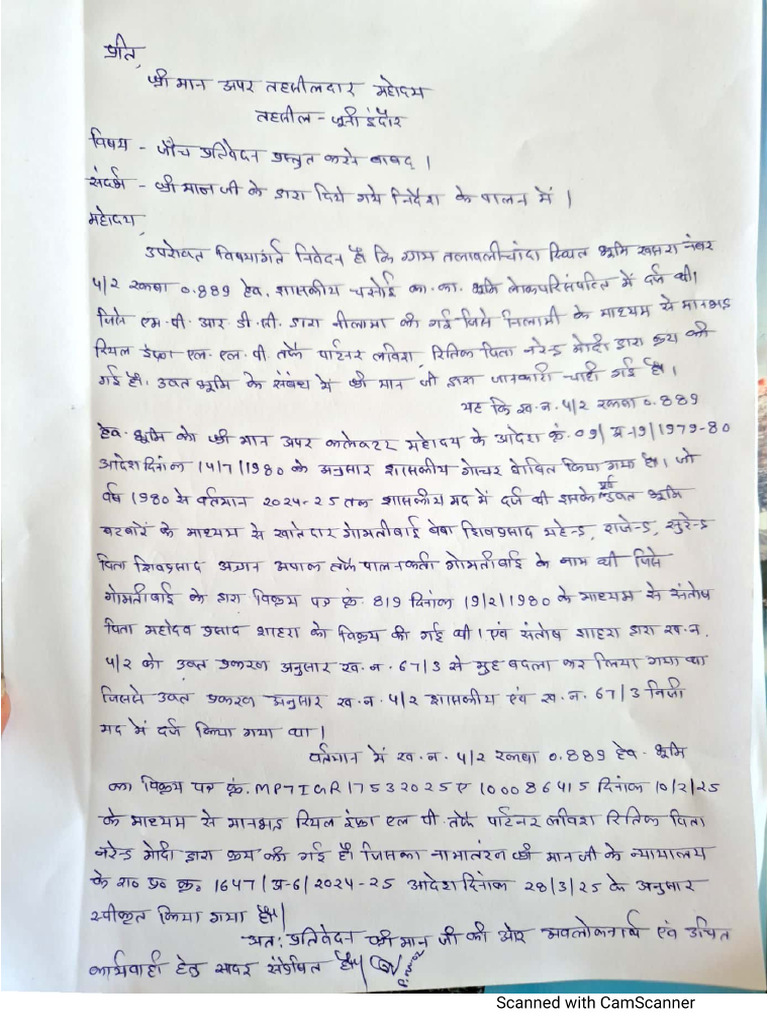 प्रति,
श्री मान अपर तहसीलदार महोदय
तहसील - जूनी इंदौर
विषय - जाँच प्रतिवेदन प्रस्तुत करने बाबद् ।
संदर्भ - श्री मानजी के द्वारा दिये गये निर्देश के पालन में ।
महोदय,
उपरोक्त विषयांर्गत निवेदन है। कि ग्राम तलावलीचांदा स्थित भूमि खसरा नंबर
4/2 रकबा 0.889 हेक. शासकीय चरनोई का.का. भूमि लोकपरिसंपत्ति में दर्ज थी।
जिसे एम.पी.आर.डी.सी. द्वारा नीलामी की गई जिसे निलामी के माध्यम से मानभद्र
रियल इंफ्रा एल.एल.पी. तर्फे पार्टनर लविश, रितिक पिता नरेन्द्र मोदी द्वारा क्रय की
गई है। उक्त भूमि के संबंध में श्री मान जी द्वारा जानकारी चाही गई है।
यह कि ख.न. 4/2 रकबा 0.889
हेक. भूमि को श्री मान अपर कलेक्टर महोदय के आदेश क्रं. 09/अ-19/1979-80
आदेश दिनांक 14/7/1980 के अनुसार शासकीय गोचर घोषित किया गया है। जो
वर्ष 1980 से वर्तमान 2024-25 तक शासकीय मद में दर्ज थी इसके पूर्व उक्त भूमि
बटवारें के माध्यम से खातेदार गोमतीबाई बेवा शिवप्रसाद महेन्द्र, राजेन्द्र, सुरेन्द्र
पिता शिवप्रसाद अज्ञान अपाक तर्फे पालनकर्ता गोमतीबाई के नाम थी जिसे
गोमतीबाई के द्वारा विक्रय पत्र क्रं. 819 दिनांक 19/2/1980 के माध्यम से संतोष
पिता महादेव प्रसाद शाहरा को विक्रय की गई थी। एवं संतोष शाहरा द्वारा ख.न.
4/2 को उक्त प्रकरण अनुसार ख.न. 67/3 से मुह बदला कर लिया गया था
जिससे उक्त प्रकरण अनुसार ख.न. 4/2 शासकीय एवं ख.न. 67/3 निजी
मद में दर्ज किया गया था।
वर्तमान में ख.न. 4/2 रकबा 0.889 हेक. भूमि
का विक्रय पत्र क्रं. MP7IGR17532025ए100086415 दिनांक 10/2/25
के माध्यम से मानभद्र रियल इंफ्रा एल पी. तर्फे पार्टनर लविश रितिक पिता
नरेन्द्र मोदी द्वारा क्रय की गई है। जिसका नामातंरण श्री मान जी के न्यायालय
के रा० प्र० क्र० 1647/अ-6/2024-25 आदेश दिनांक 28/3/25 के अनुसार
स्वीकृत किया गया है।
अत: प्रतिवेदन श्री मान जी की ओर अवलोकनार्थ एवं उचित
कार्यवाही हेतु सादर संप्रेषित है।
Scanned with CamScanner